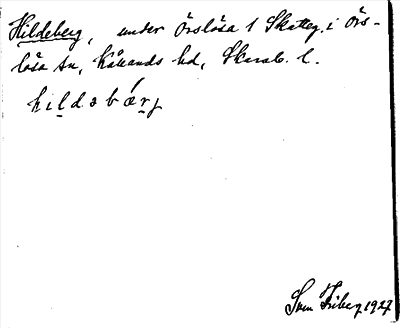 Hildeberg, under Örslösa 1 Skatteg. i Örs-
lösa sn, Kållands hd, Skarab. l.
hildəbærj
Sven Friberg 1927